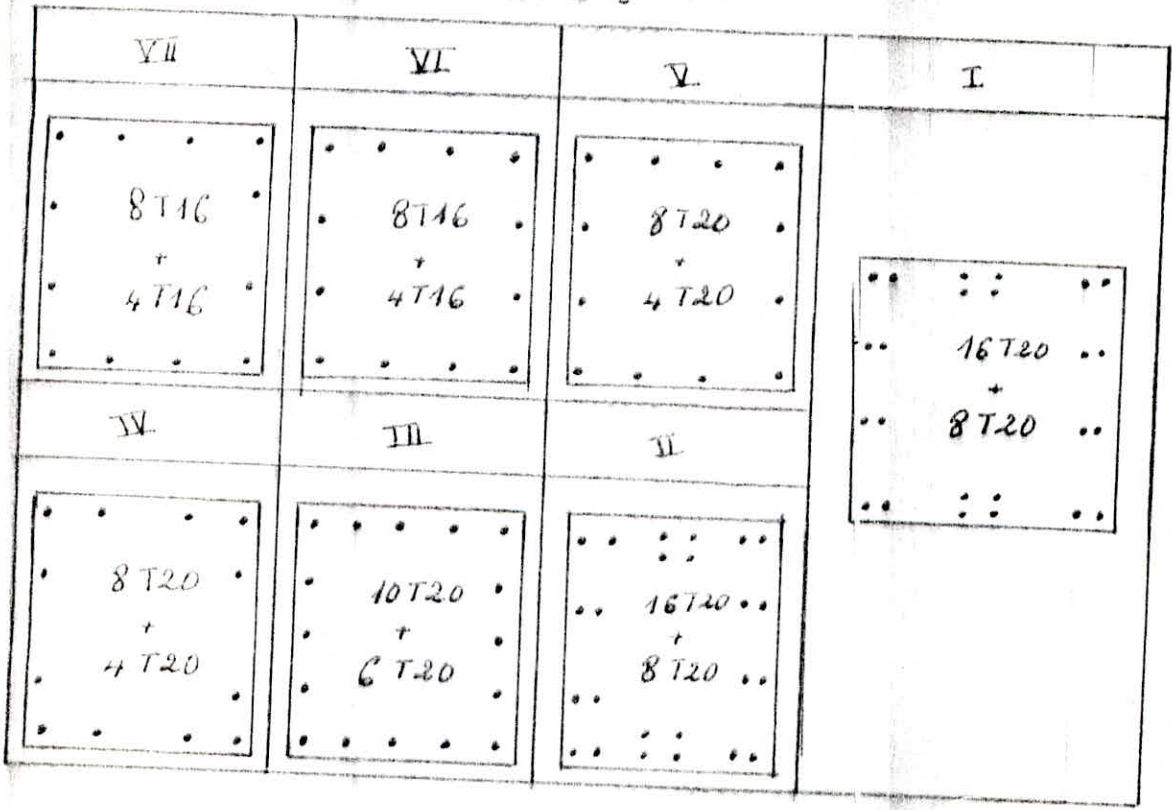 VII
VI
V
I
8T16
+
4T16
8T16
+
4T16
8T20
+
4T20
16T20
+
8T20
IV
III
II
8T20
+
4T20
10T20
+
6T20
16T20
+
8T20